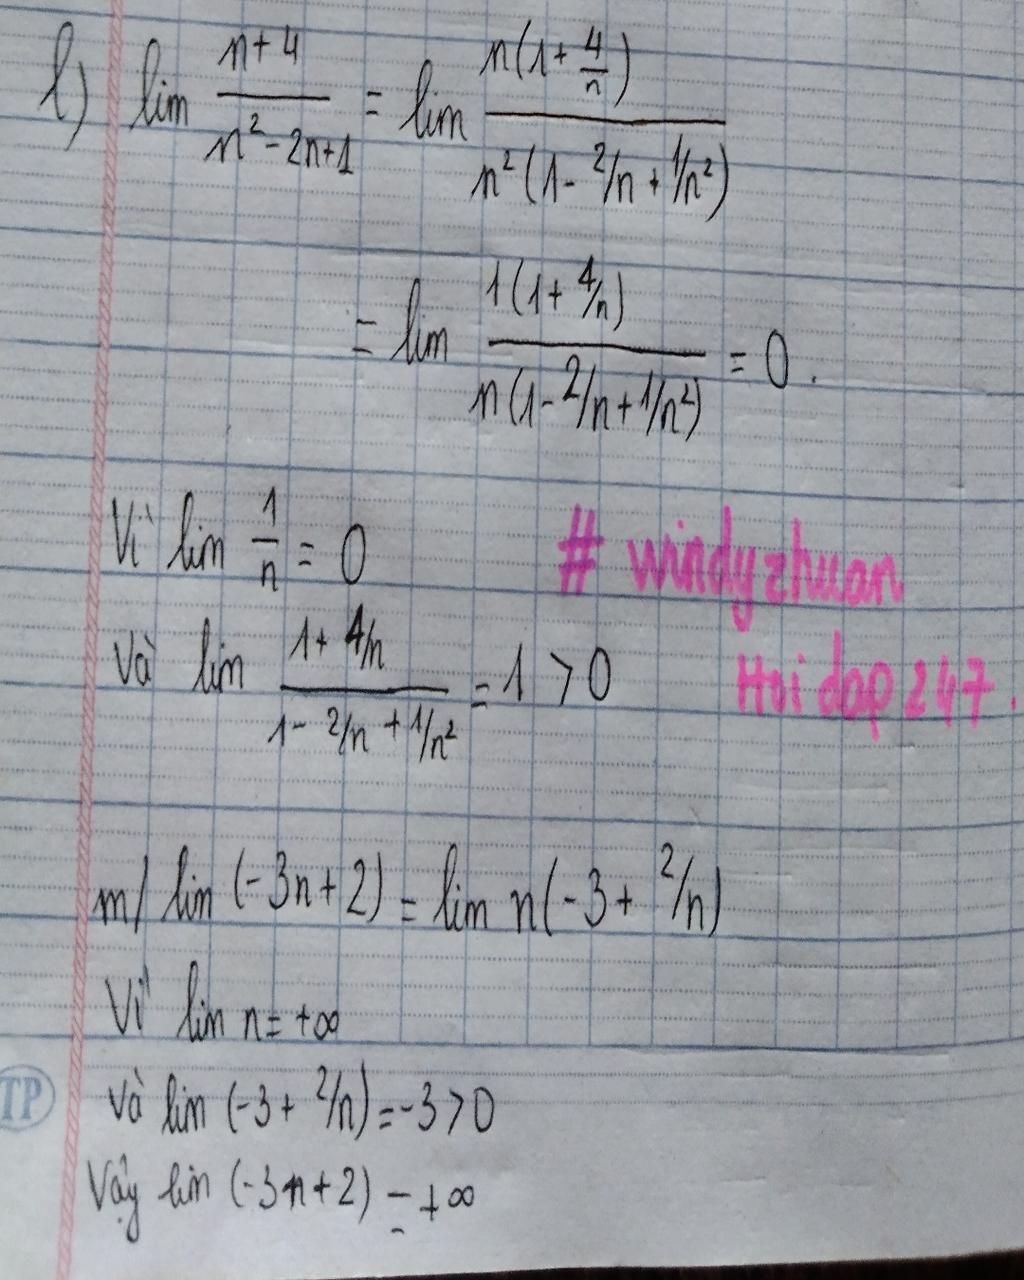 l) lim (n+4)/(n²-2n+1) = lim n(1+4/n)/n²(1-2/n+1/n²)
= lim 1(1+4/n)/n(1-2/n+1/n²) = 0.
Vì lim 1/n = 0
# windyzhuan
và lim (1+4/n)/(1-2/n+1/n²) = 1 > 0
Hoi dap 247.
m/ lim (-3n+2) = lim n(-3+2/n)
Vì lim n = +∞
TP
và lim (-3+2/n) = -3 > 0
Vậy lim (-3n+2) = +∞